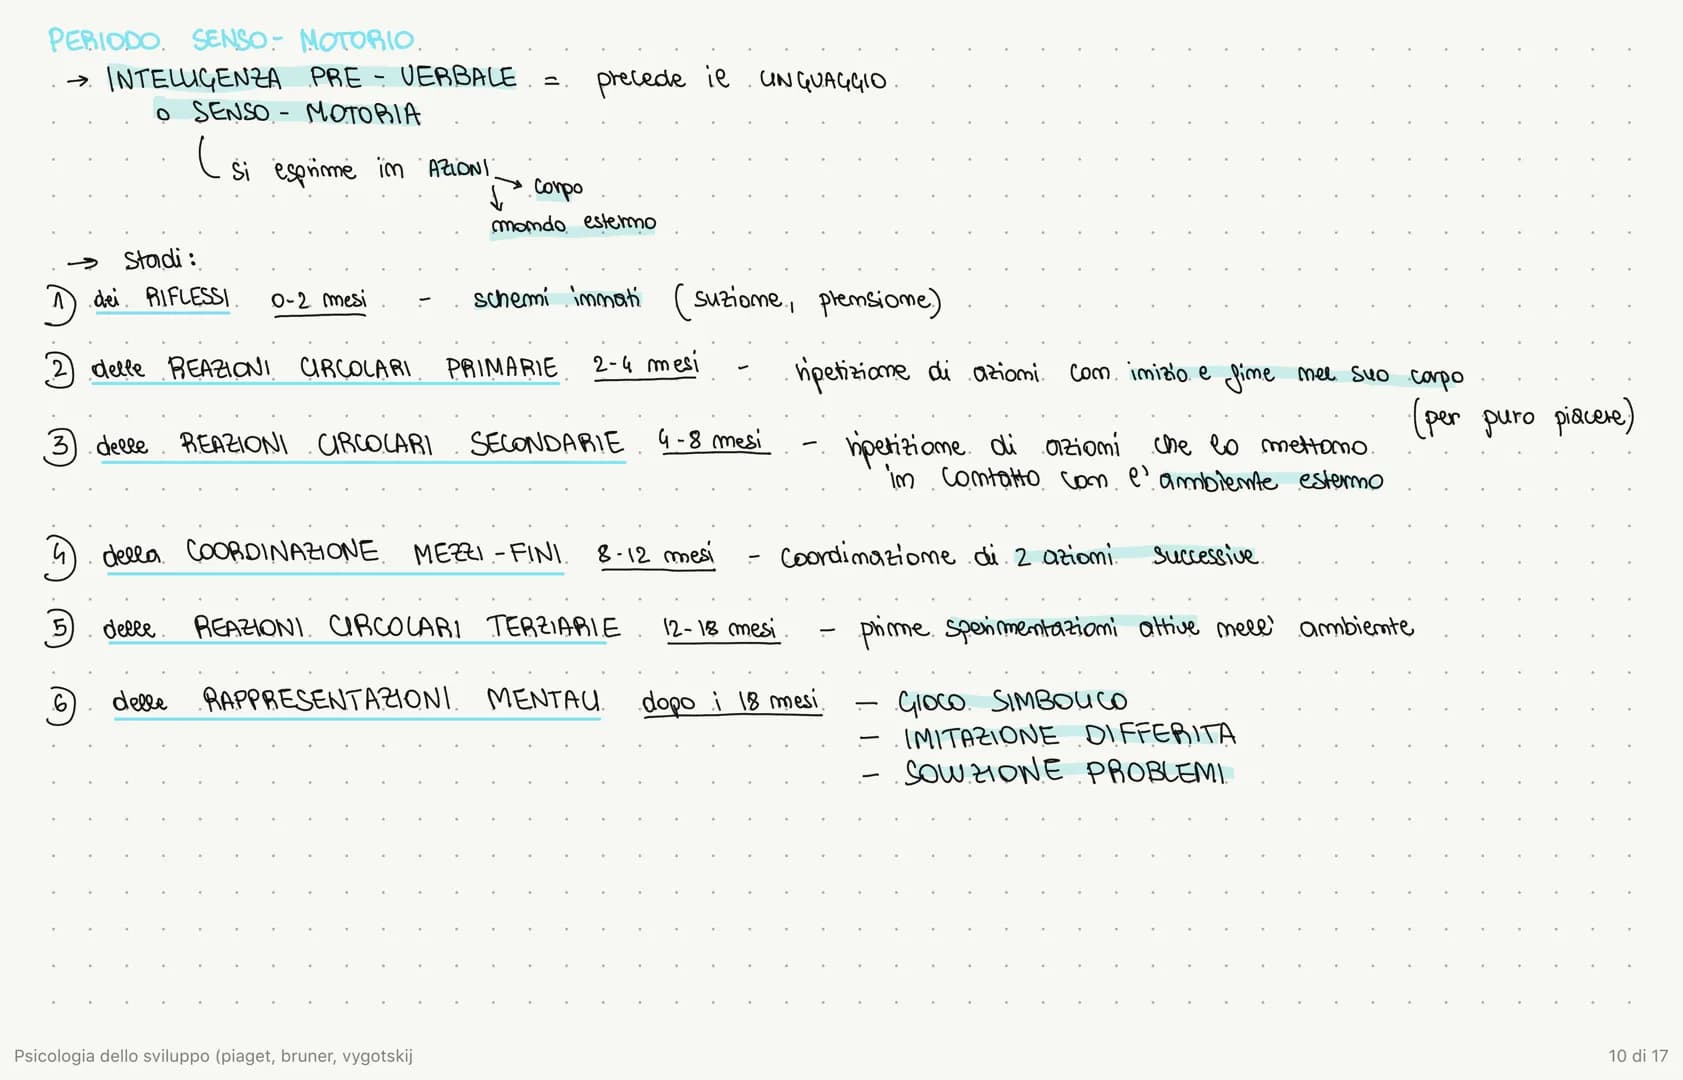 PERIODO SENSO-MOTORIO
→ INTELLIGENZA PRE-VERBALE = precede il LINGUAGGIO
o SENSO-MOTORIA
si esprime in AZIONI → corpo
↓
mondo esterno
→ Stadi:
1) dei RIFLESSI 0-2 mesi - schemi innati (suzione, prensione)
2) delle REAZIONI CIRCOLARI PRIMARIE 2-4 mesi - ripetizione di azioni con inizio e fine nel suo corpo
(per puro piacere)
3) delle REAZIONI CIRCOLARI SECONDARIE 4-8 mesi - ripetizione di azioni che lo mettono
in contatto con l'ambiente esterno
4) della COORDINAZIONE MEZZI-FINI 8-12 mesi - coordinazione di 2 azioni successive
5) delle REAZIONI CIRCOLARI TERZIARIE 12-18 mesi - prime sperimentazioni attive nell'ambiente
6) delle RAPPRESENTAZIONI MENTALI dopo i 18 mesi - GIOCO SIMBOLICO
- IMITAZIONE DIFFERITA
- SOLUZIONE PROBLEMI
Psicologia dello sviluppo (piaget, bruner, vygotskij
10 di 17